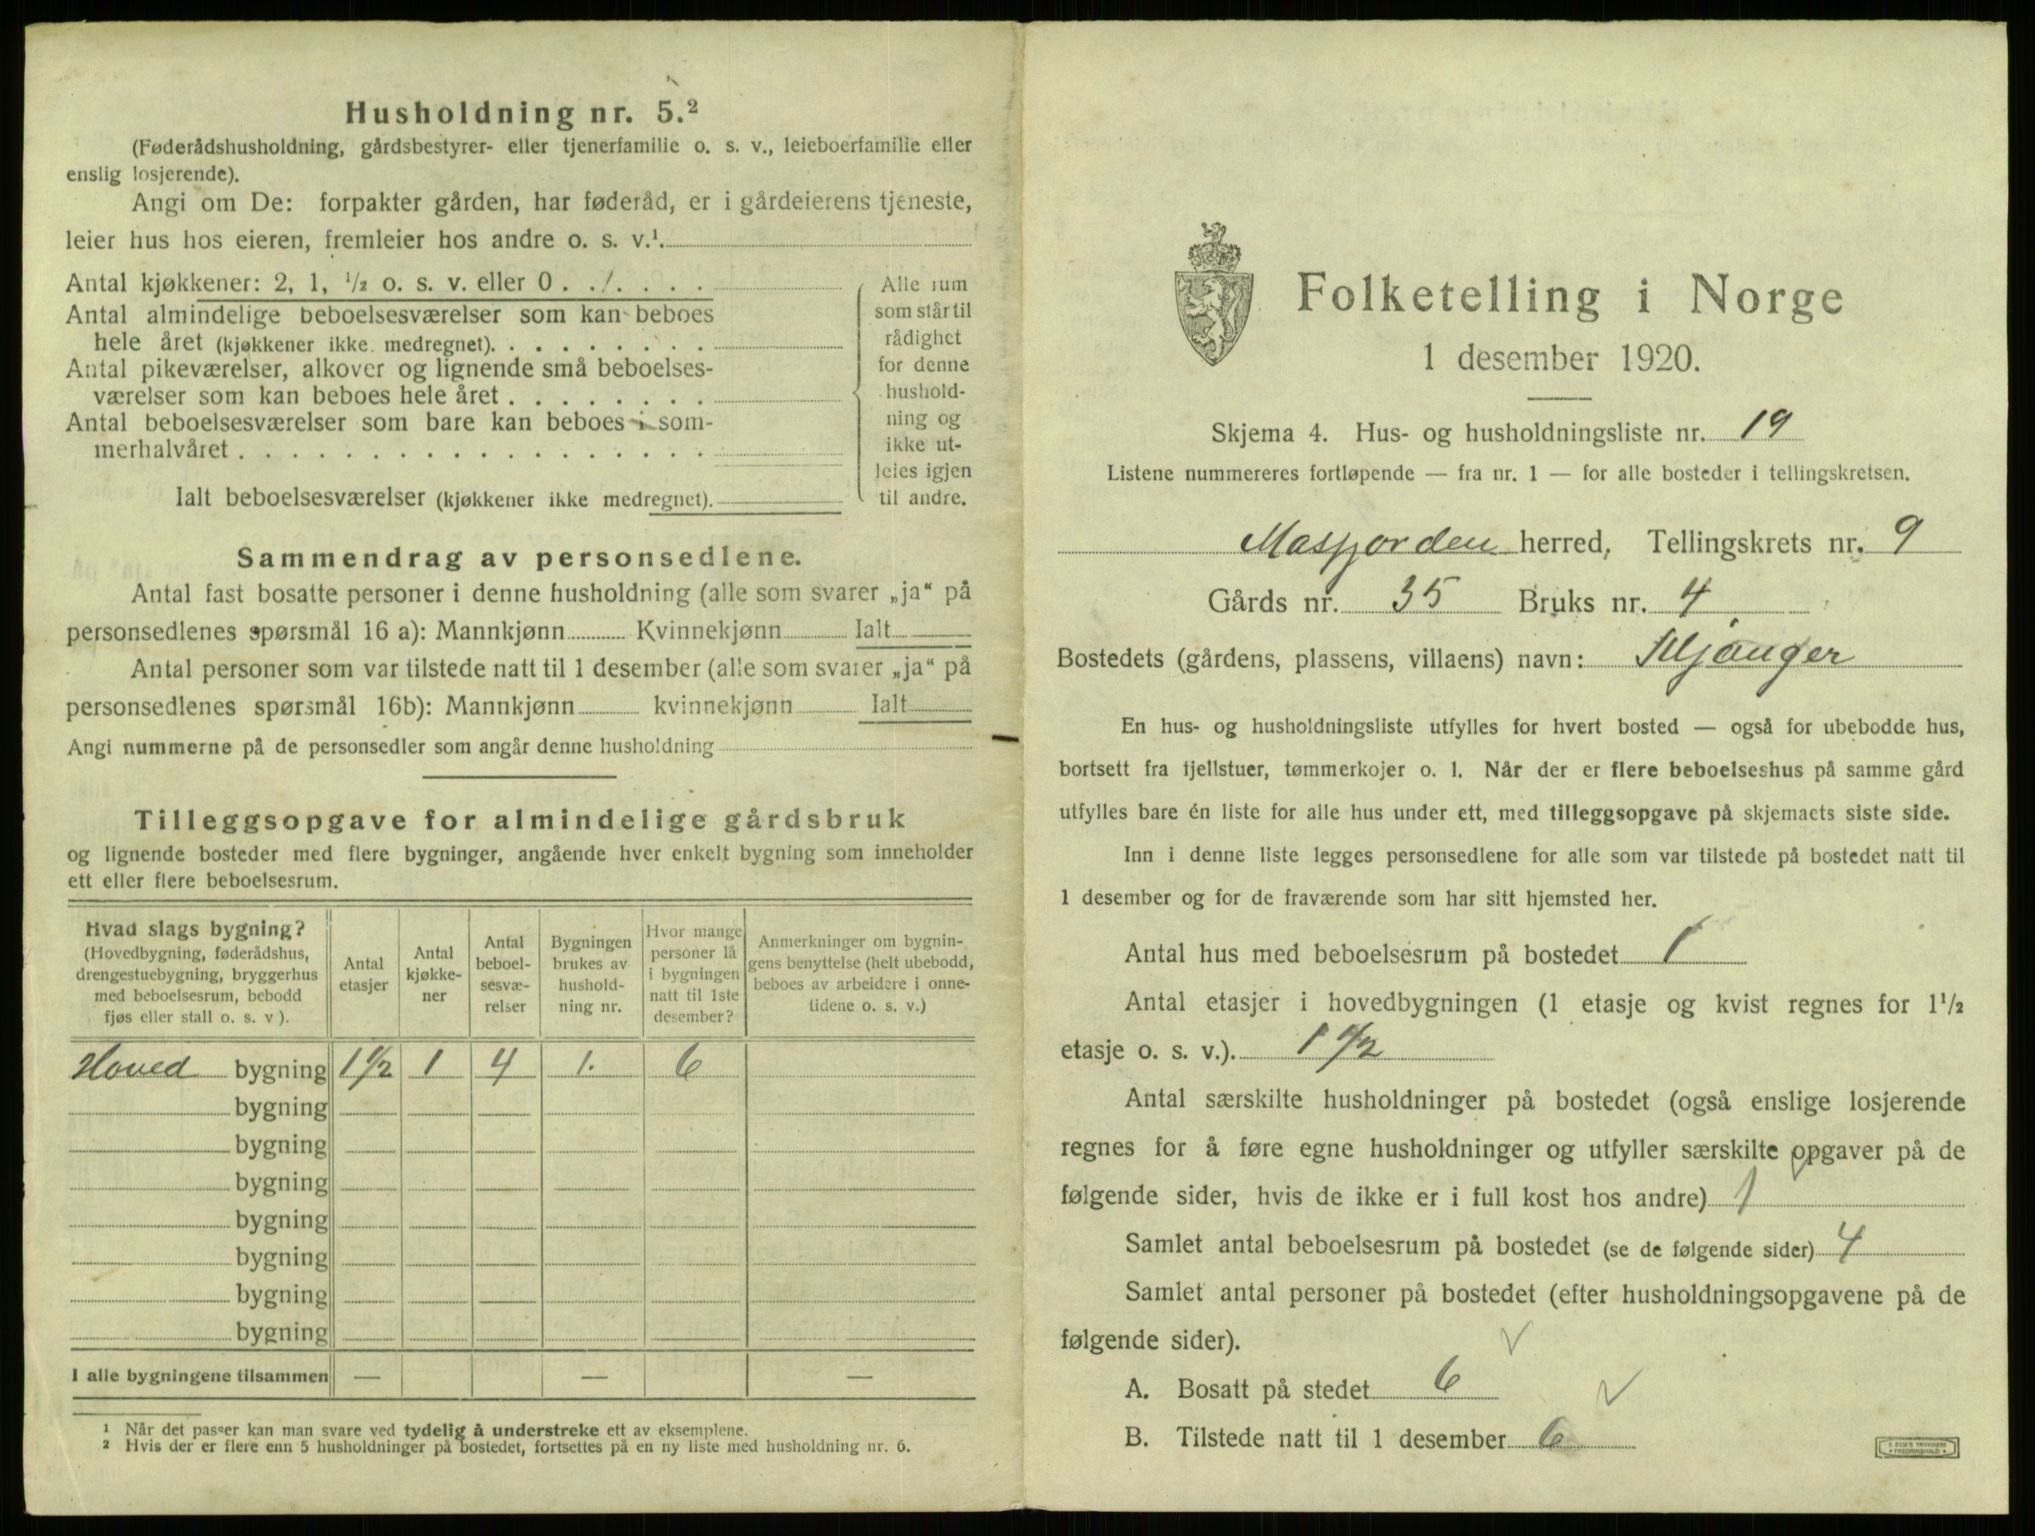 Husholdning nr. 5.²
(Føderådshusholdning, gårdsbestyrer- eller tjenerfamilie o. s. v., leieboerfamilie eller
enslig losjerende).
Angi om De: forpakter gården, har føderåd, er i gårdeierens tjeneste,
leier hus hos eieren, fremleier hos andre o. s. v.¹
Antal kjøkkener: 2, 1, ½ o. s. v. eller 0
Antal almindelige beboelsesværelser som kan beboes
hele året (kjøkkener ikke medregnet)
Antal pikeværelser, alkover og lignende små beboelses-
værelser som kan beboes hele året
Antal beboelsesværelser som bare kan beboes i som-
merhalvåret
Ialt beboelsesværelser (kjøkkener ikke medregnet)
Alle rum
som står til
rådighet
for denne
hushold-
ning og
ikke ut-
leies igjen
til andre.
Sammendrag av personsedlene.
Antal fast bosatte personer i denne husholdning (alle som svarer „ja“ på
personsedlenes spørsmål 16 a): Mannkjønn Kvinnekjønn Ialt
Antal personer som var tilstede natt til 1 desember (alle som svarer „ja“ på
personsedlenes spørsmål 16b): Mannkjønn kvinnekjønn Ialt
Angi nummerne på de personsedler som angår denne husholdning
Tilleggsopgave for almindelige gårdsbruk
og lignende bosteder med flere bygninger, angående hver enkelt bygning som inneholder
ett eller flere beboelsesrum.
Hvad slags bygning?
(Hovedbygning, føderådshus,
drengestuebygning, bryggerhus
med beboelsesrum, bebodd
fjøs eller stall o. s. v ).
Antal
etasjer
Antal
kjøkke-
ner
Antal
beboel-
sesvæ-
relser
Bygningen
brukes av
hushold-
ning nr.
Hvor mange
personer lå
i bygningen
natt til 1ste
desember?
Anmerkninger om bygnin-
gens benyttelse (helt ubebodd,
beboes av arbeidere i onne-
tidene o. s. v.)
Hoved bygning 1½ 1 4 1. 6
bygning
bygning
bygning
bygning
bygning
bygning
bygning
I alle bygningene tilsammen — — —
¹ Når det passer kan man svare ved tydelig å understreke ett av eksemplene.
² Hvis der er flere enn 5 husholdninger på bostedet, fortsettes på en ny liste med husholdning nr. 6.
Folketelling i Norge
1 desember 1920.
Skjema 4. Hus- og husholdningsliste nr. 19
Listene nummereres fortløpende — fra nr. 1 — for alle bosteder i tellingskretsen.
Masfjorden herred, Tellingskrets nr. 9
Gårds nr. 35 Bruks nr. 4
Bostedets (gårdens, plassens, villaens) navn: Kljånger
En hus- og husholdningsliste utfylles for hvert bosted — også for ubebodde hus,
bortsett fra fjellstuer, tømmerkojer o. l. Når der er flere beboelseshus på samme gård
utfylles bare én liste for alle hus under ett, med tilleggsopgave på skjemaets siste side.
Inn i denne liste legges personsedlene for alle som var tilstede på bostedet natt til
1 desember og for de fraværende som har sitt hjemsted her.
Antal hus med beboelsesrum på bostedet 1
Antal etasjer i hovedbygningen (1 etasje og kvist regnes for 1½
etasje o. s. v.). 1½
Antal særskilte husholdninger på bostedet (også enslige losjerende
regnes for å føre egne husholdninger og utfyller særskilte opgaver på de
følgende sider, hvis de ikke er i full kost hos andre) 1
Samlet antal beboelsesrum på bostedet (se de følgende sider) 4
Samlet antal personer på bostedet (efter husholdningsopgavene på de
følgende sider).
A. Bosatt på stedet 6
B. Tilstede natt til 1 desember 6